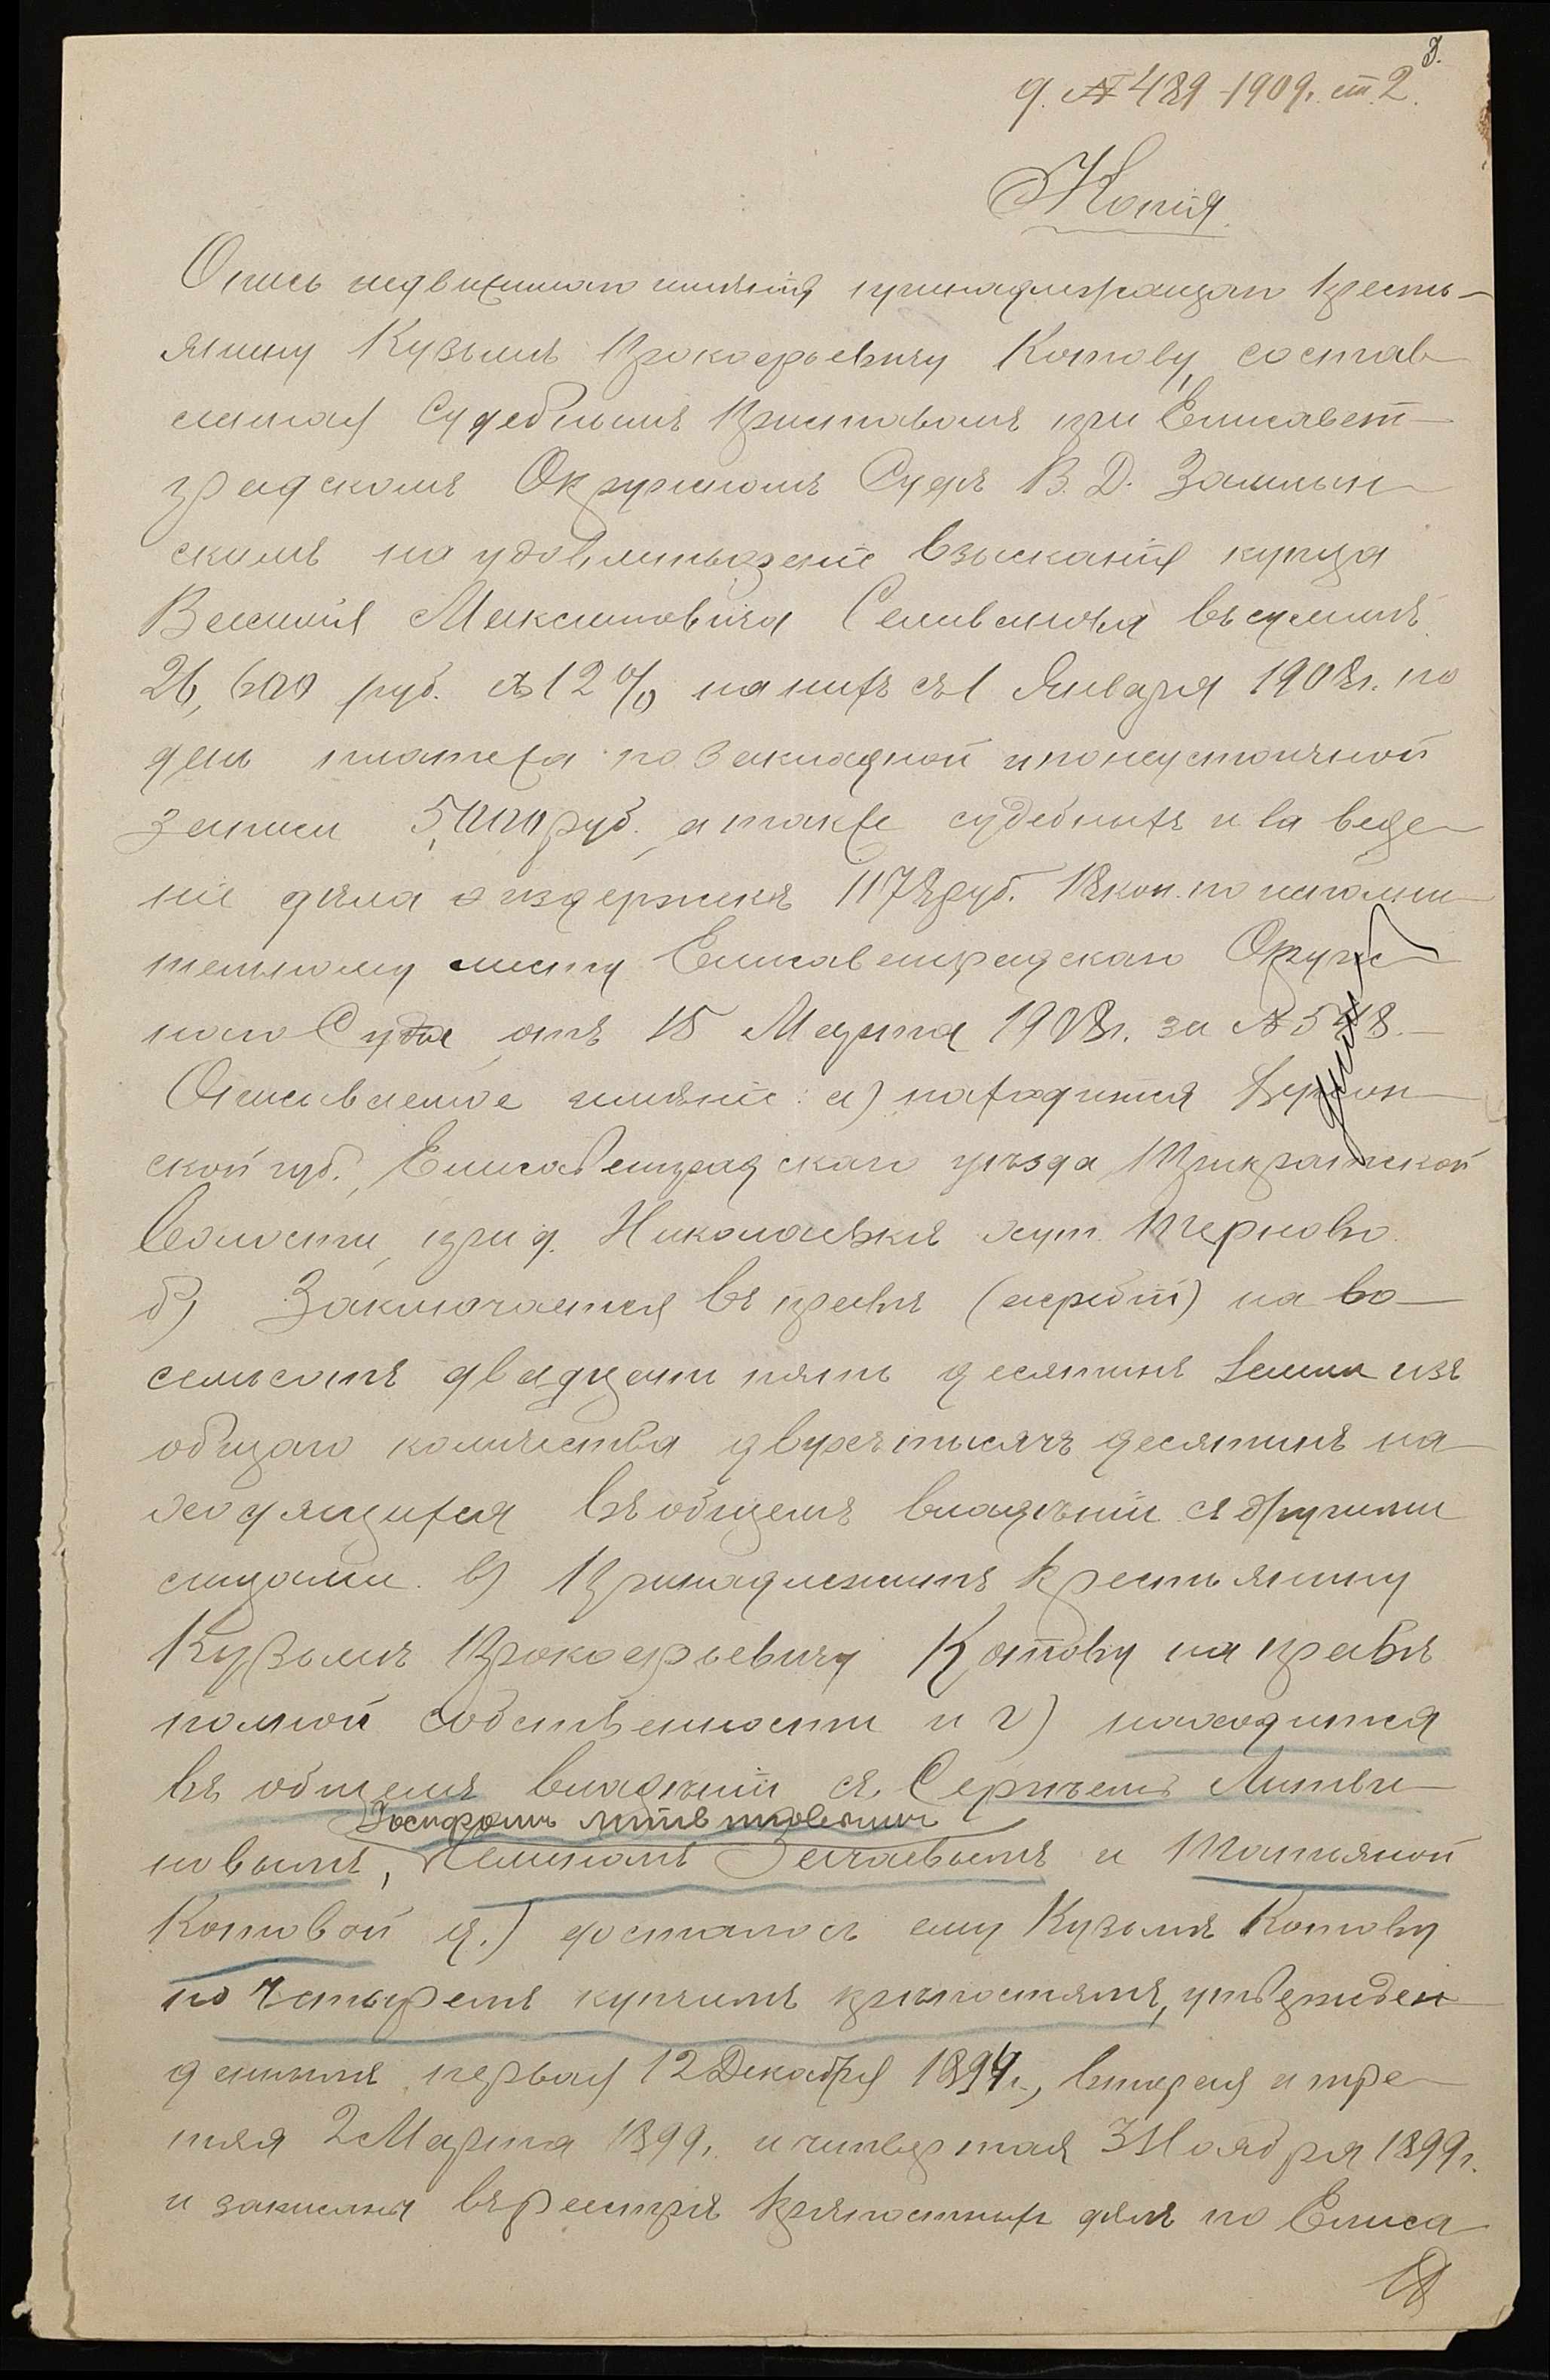 8.
д. № 489-1909. ст. 2.
Копія.
Опись недвижимаго имѣнія принадлежащаго кресть-
янину Кузьмѣ Прокофьевичу Котову, состав-
ленная Судебнымъ Приставомъ при Елисавет-
градскомъ Окружномъ Судѣ В. Д.
скимъ на удовлетвореніе взысканія купца
Василія Максимовича Селиванова въ суммѣ
26,600 руб. съ 12% на нихъ съ 1 Января 1908г. по
день платежа по закладной и по неустоичной
записи 5,000 руб., а также судебныхъ и за веде-
ніе дѣла издержекъ 1178 руб. 18 коп. по исполни-
тельному листу Елисаветградскаго Окруж-
наго Суда отъ 15 Марта 1908г. за № 548.-
Описываемое имѣніе: а) находится Херсон-
ской губ., Елисаветградскаго уѣзда, Прикратской
Волости, при д. Николаевкѣ хут. Терново.
б) Заключается въ правѣ (жребій) на во-
семьсотъ двадцать пять десятинъ земли изъ
общаго количества двухъ тысячъ десятинъ на-
ходящихся въ общемъ владѣніи съ другими
лицами. в) Принадлежитъ крестьянину
Кузьмѣ Прокофьевичу Котову на правѣ
полной собственности и г) находится
въ общемъ владѣніи съ Сергѣемъ Литви-
Іосифомъ Литвиновымъ
новымъ, и Татьяной
Котовой д.) досталось ему Кузьмѣ Котову
по четыремъ купчимъ крѣпостямъ, утвержден
деннымъ первая 12 Декабря 1894г., вторая и тре-
тья 2 Марта 1899. и четвертая 3 Ноября 1899г.
и записаны въ реестрѣ крѣпостныхъ дѣлъ по Елиса-